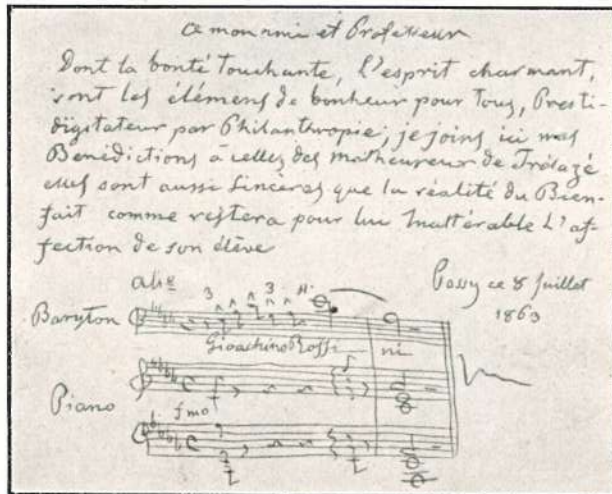 a mon ami et Professeur
Dont la bonté Touchante, l'esprit charmant,
sont les élémens de bonheur pour Tous, Presti-
digitateur par Philanthropie; je joins ici mes
Bénédictions à celles des malheureux de Trélazé
elles sont aussi Sincères que la réalité du Bien-
fait comme restera pour lui Inaltérable L'af-
fection de son élève
Passy ce 8 Juillet
1863
allo
3 3
Baryton
Gioachino Rossi ni
Piano
fmo